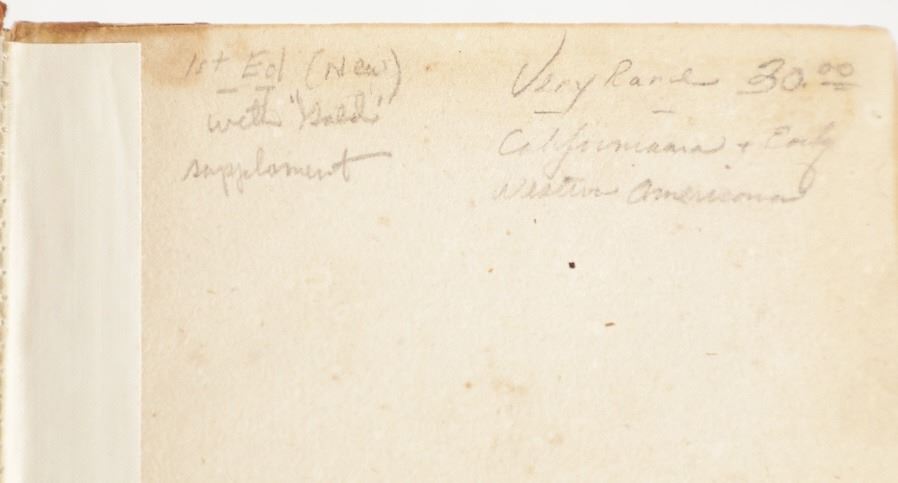 1st Ed (New)
with "Gold"
supplement
Very Rare 30.00
Californiana + Early
Western Americana